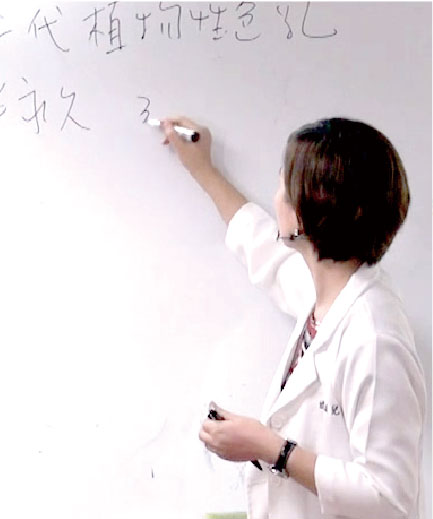 代植物性色乳
永久 3